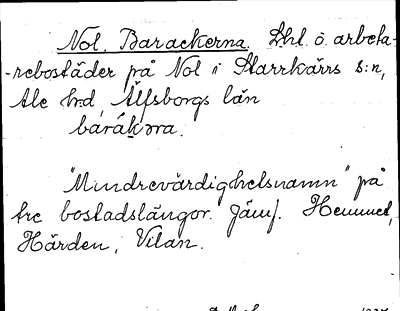 Nol. Barackerna. Lhl. ö. arbeta-
-rebostäder på Nol i Starrkärrs s:n,
Ale hd, Älfsborgs län
barákəra.
"Mindrevärdighetsnamn" på
tre bostadslängor. Jämf. Hemmet,
Härden, Vilan.